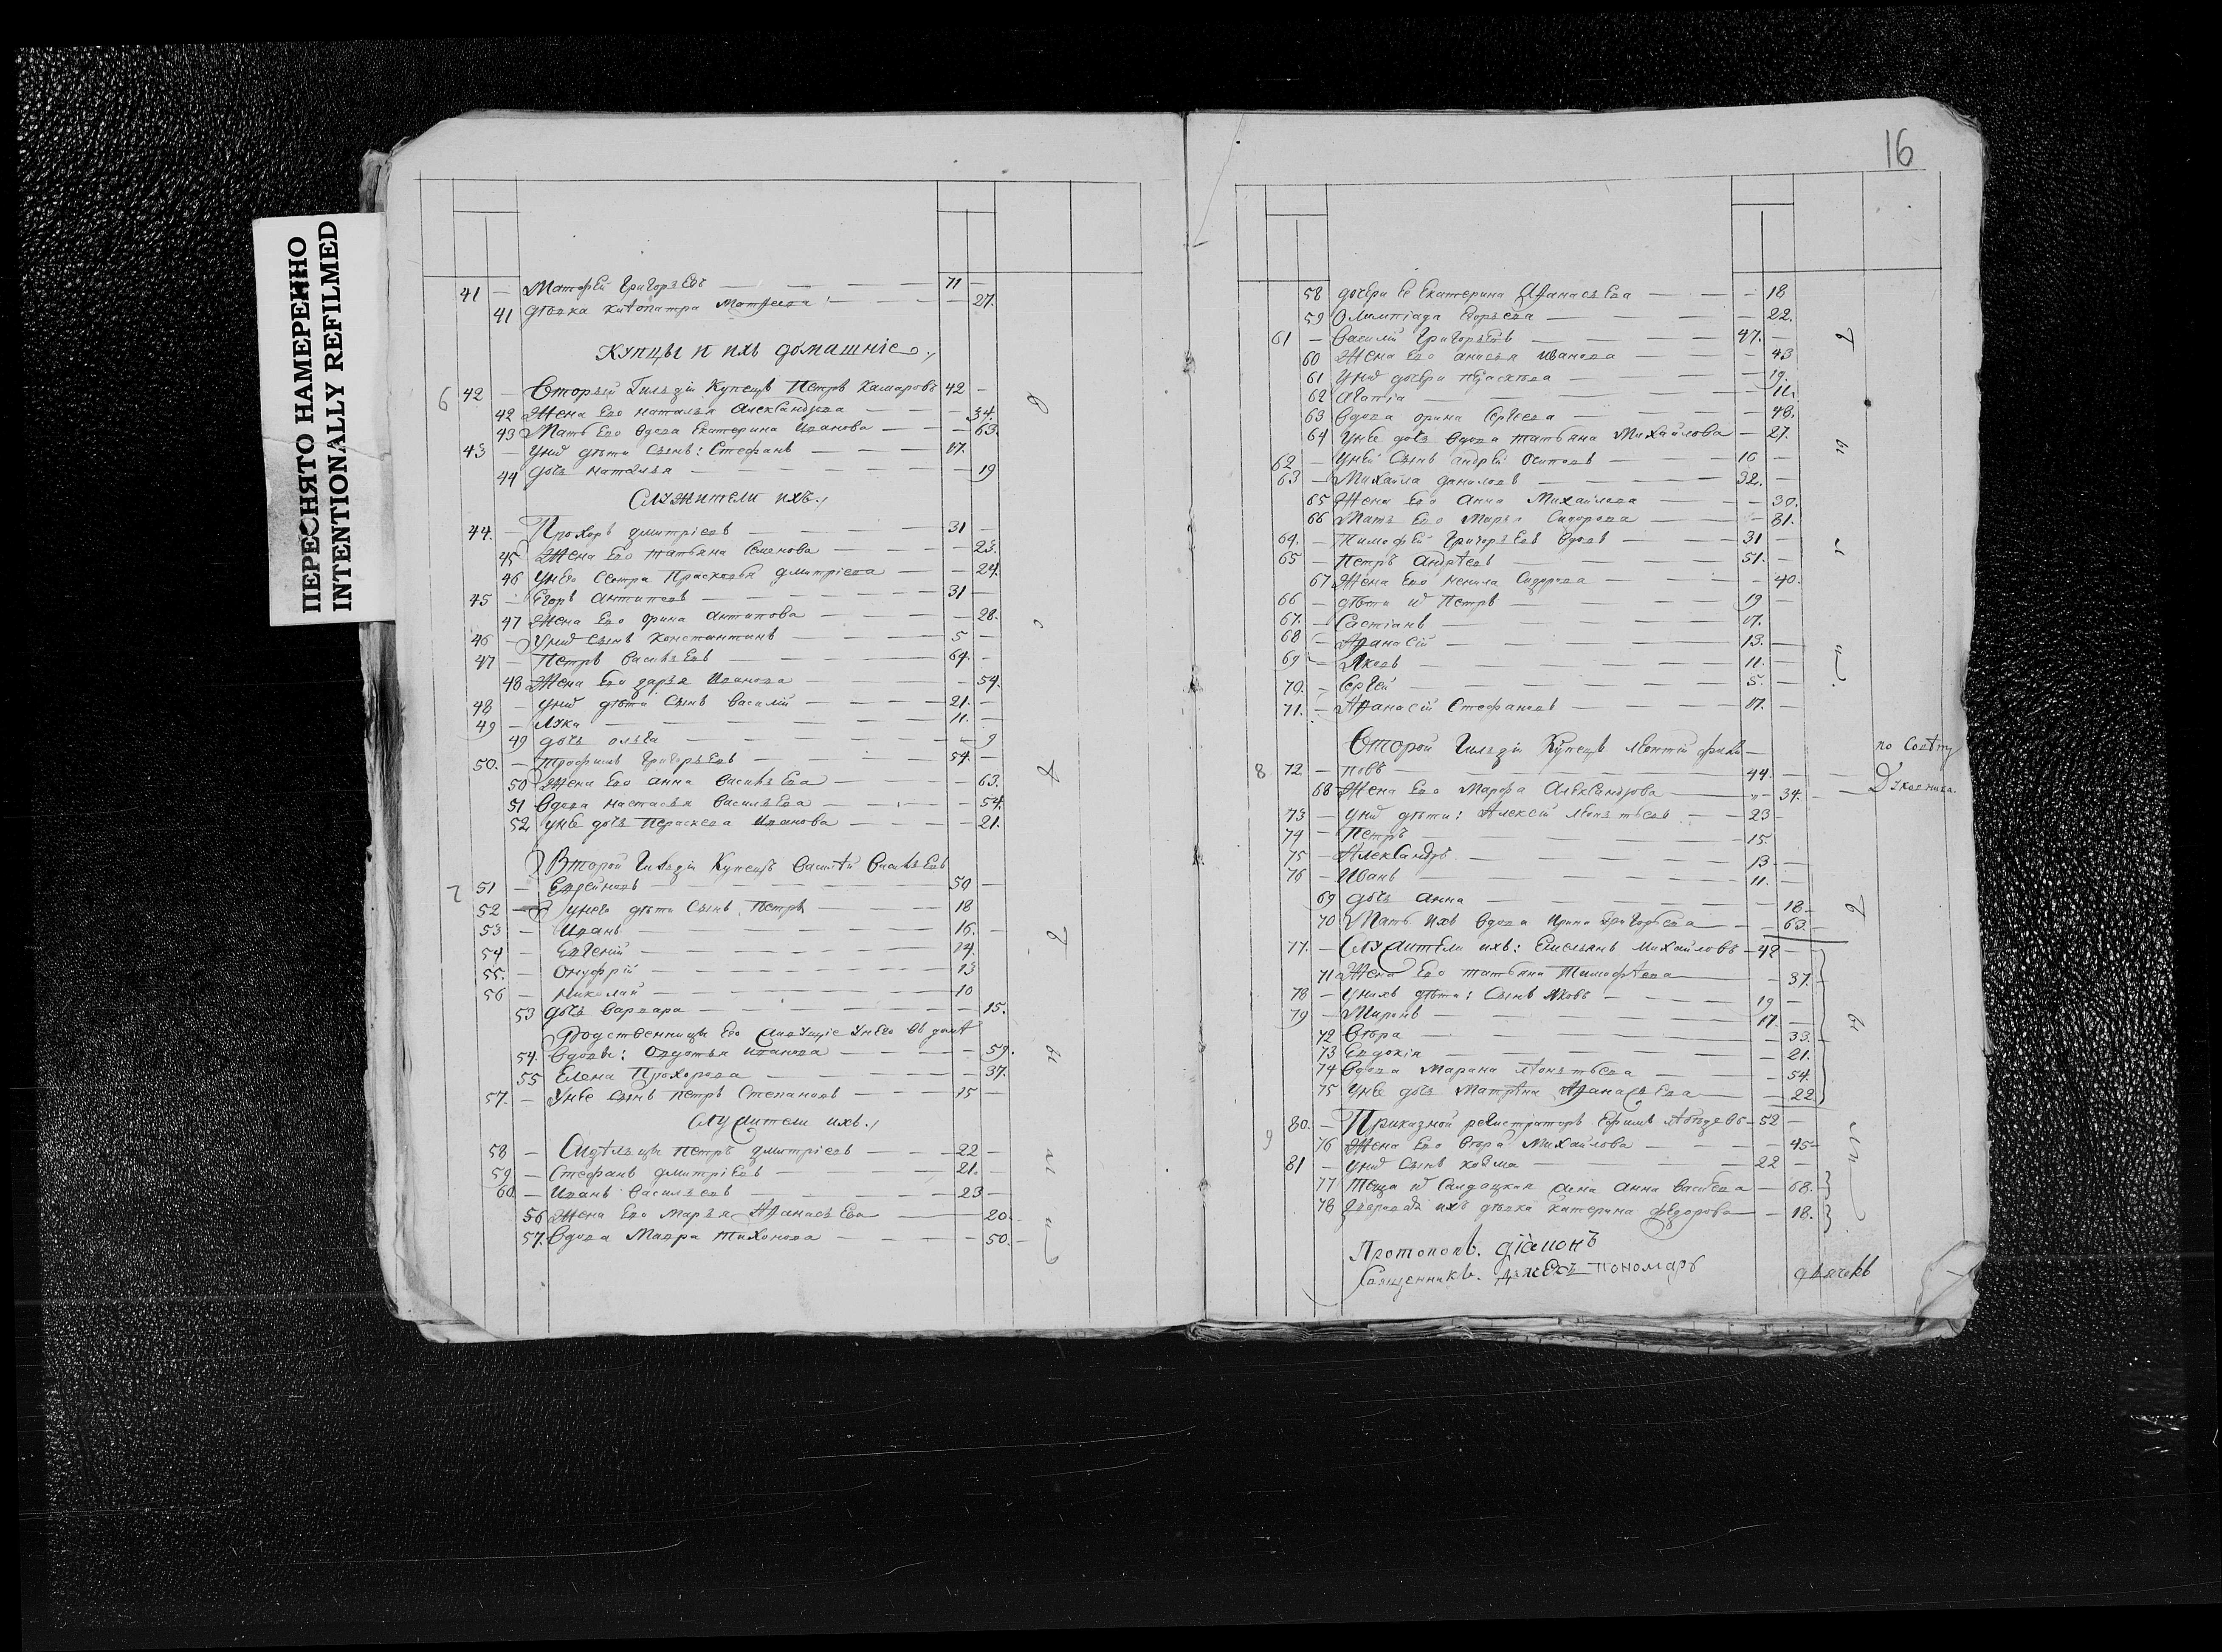 ПЕРЕСНЯТО НАМЕРЕННО
INTENTIONALLY REFILMED
41 — Матфей Григорьевъ — 71 —
41 дѣвка Матфеева — 27.
Купцы и ихъ домашніе.,
6 42 — Второй Гильдіи Купецъ Петръ Комаровъ 42 —
42 Жена Его наталья Александрова — 34.
43 Мать Его вдова Екатерина Иванова — 63.
43 — дѣти Сынъ: Стефанъ — 17.
44 дочь наталья — 19
Служители ихъ.,
44. — Прохоръ дмитріевъ — 31 —
45 Жена Его татьяна Семенова — 23.
46 Унего Сестра Прасковья дмитріева — 24.
45 — Егоръ антиповъ — 31 —
47 Жена Его орина антипова — 28.
46 — Сынъ константинъ — 5 —
47 — Петръ васильевъ — 64. —
48 Жена Его дарья Иванова — 54.
48 — дѣти Сынъ василій — 21. —
49 — Лука — 11. —
49 дочь ольга — 9
50. — трофимъ григорьевъ — 54. —
50 Жена Его анна васильева — 63.
51 Вдова настасья васильева — 54.
52 унее дочь Пераскева Иванова — 21.
Второй Гильдіи Купецъ василій васильевъ
7 51 — Евреиновъ — 50 —
52 — унего дѣти Сынъ Петръ — 18
53 — Иванъ — 16. —
54 — Евгеній — 14.
55. — Онуфрій — 13
56 — николай — 10
53 дочь варвара — 15.
Родственницы Его живущіе унего въ домѣ
54. Вдовы: Авдотья иванова — 59.
55 Елена Прохорова — 37.
57. — Унее Сынъ петръ Степановъ — 15 —
служители ихъ.,
58 — Сидѣльцы петръ дмитріевъ — 22 —
59 — Стефанъ дмитріевъ — 21. —
60. — Иванъ васильевъ — 23 —
56 Жена Его марья Афанасьева — 20.
57. Вдова Мавра тихонова — 50.
16
58 дочери Ее Екатерина Афанасьева — 18
59 Олимпіада Егорьева — 22.
61 — василій Григорьевъ — 47. —
60 Жена Его анисья иванова — 43
61 дочери праскева — 19.
62 Агапіа — 11.
63 вдова орина Сергеева — 48.
64 Унее дочь вдова татьяна Михайлова — 27.
62 — Унеи Сынъ андрей осиповъ — 16 —
63 — Михайла даниловъ — 32. —
65 Жена Его анна Михайлова — 30.
66 Мать Его Марья Сидорова — 81.
64. — тимофей Григорьевъ вдовъ — 31 —
65 — Петръ андрѣевъ — 51. —
67 Жена Его ненила Сидорова — 40.
66 — дѣти Петръ — 19
67. — Састіанъ — 17.
68 — Афанасій — 13. —
69 — Яковъ — 11. —
70. — Сергей — 5. —
71. — Афанасій Стефановъ — 17. —
Второй Гильдіи Купецъ леонтій фили—
8 72. — повъ — 44. —
по Совѣту
68 Жена Его Марфа Александрова — 34. —
Духовника.
73 — дѣти: Алексей леонтьевъ — 23 —
74 — Петръ — 15.
75 — Александръ — 13 —
76 — Иванъ — 11. —
69 дочь анна — 18 —
70 Мать ихъ вдова Ирина Григорьева — 63. —
77. — Служители ихъ: Емельянъ михайловъ — 42 —
71 Жена Его татьяна Тимофѣева — 37. —
78 — Унихъ дѣти: Сынъ яковъ — 19 —
79 — Миронъ — 17. —
72 — 33. —
73 Евдокія — 21.
74 Вдова Марина леонтьева — 54.
75 Унее дочь Матрена Афанасьева — 22
9 80. — Приказной регистраторъ Ефимъ — 52 —
76 Жена Его Михайлова — 45 —
81 — Сынъ козма — 22 —
77 Теща Салдацкая жена анна — 68. —
78 ихъ дѣвка катерина федорова — 18.
Протопопъ. діаконъ
Священникъ. пономарь дьячекъ